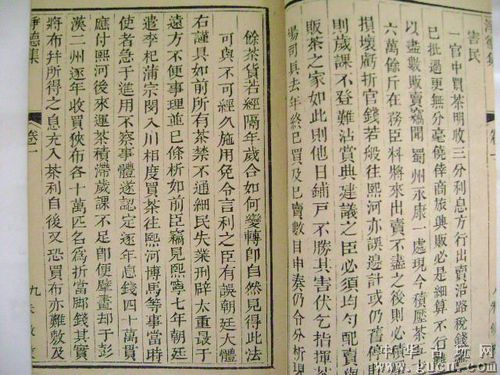 害民
一官中買茶明收三分利息方行出賣沿路稅錢
已批過更無分毫僥倖商旅興販必是細算不行
以盡數販賣竊聞蜀州永康一處現今積壓茶
六萬餘斤在務臣料將來出賣不盡之後則必積
損壞虧折官錢若般往熙河亦誤邊計或仍舊
則歲課不登難沾賞典建議之臣必須均勻配賣
販茶之家如此則他日鋪戶不勝其害伏乞指揮茶
場司具去年終已買及已賣數目申奏仍令分析現
餘茶貨若經隔年歲合如何變轉卽自然見得此法
可與不可經久施用免令言利之臣有誤朝廷大體
右謹具如前所有茶禁不通細民失業刑辟太重最于
遠方不便事理並已條析如前臣竊見熙寧七年朝廷
遣李杞蒲宗閔入川相度買茶往熙河博馬等事當時
使者急于進用不察事體遂認定逐年息錢四十萬貫
應付熙河後來運茶積滯歲課不足卽便擘畫却于彭
漢二州逐年收買狹布各十萬匹名爲折當腳錢其實
將布幷所得之息充入茶利自後又恐買布亦難敷及
淨德集 卷一 九